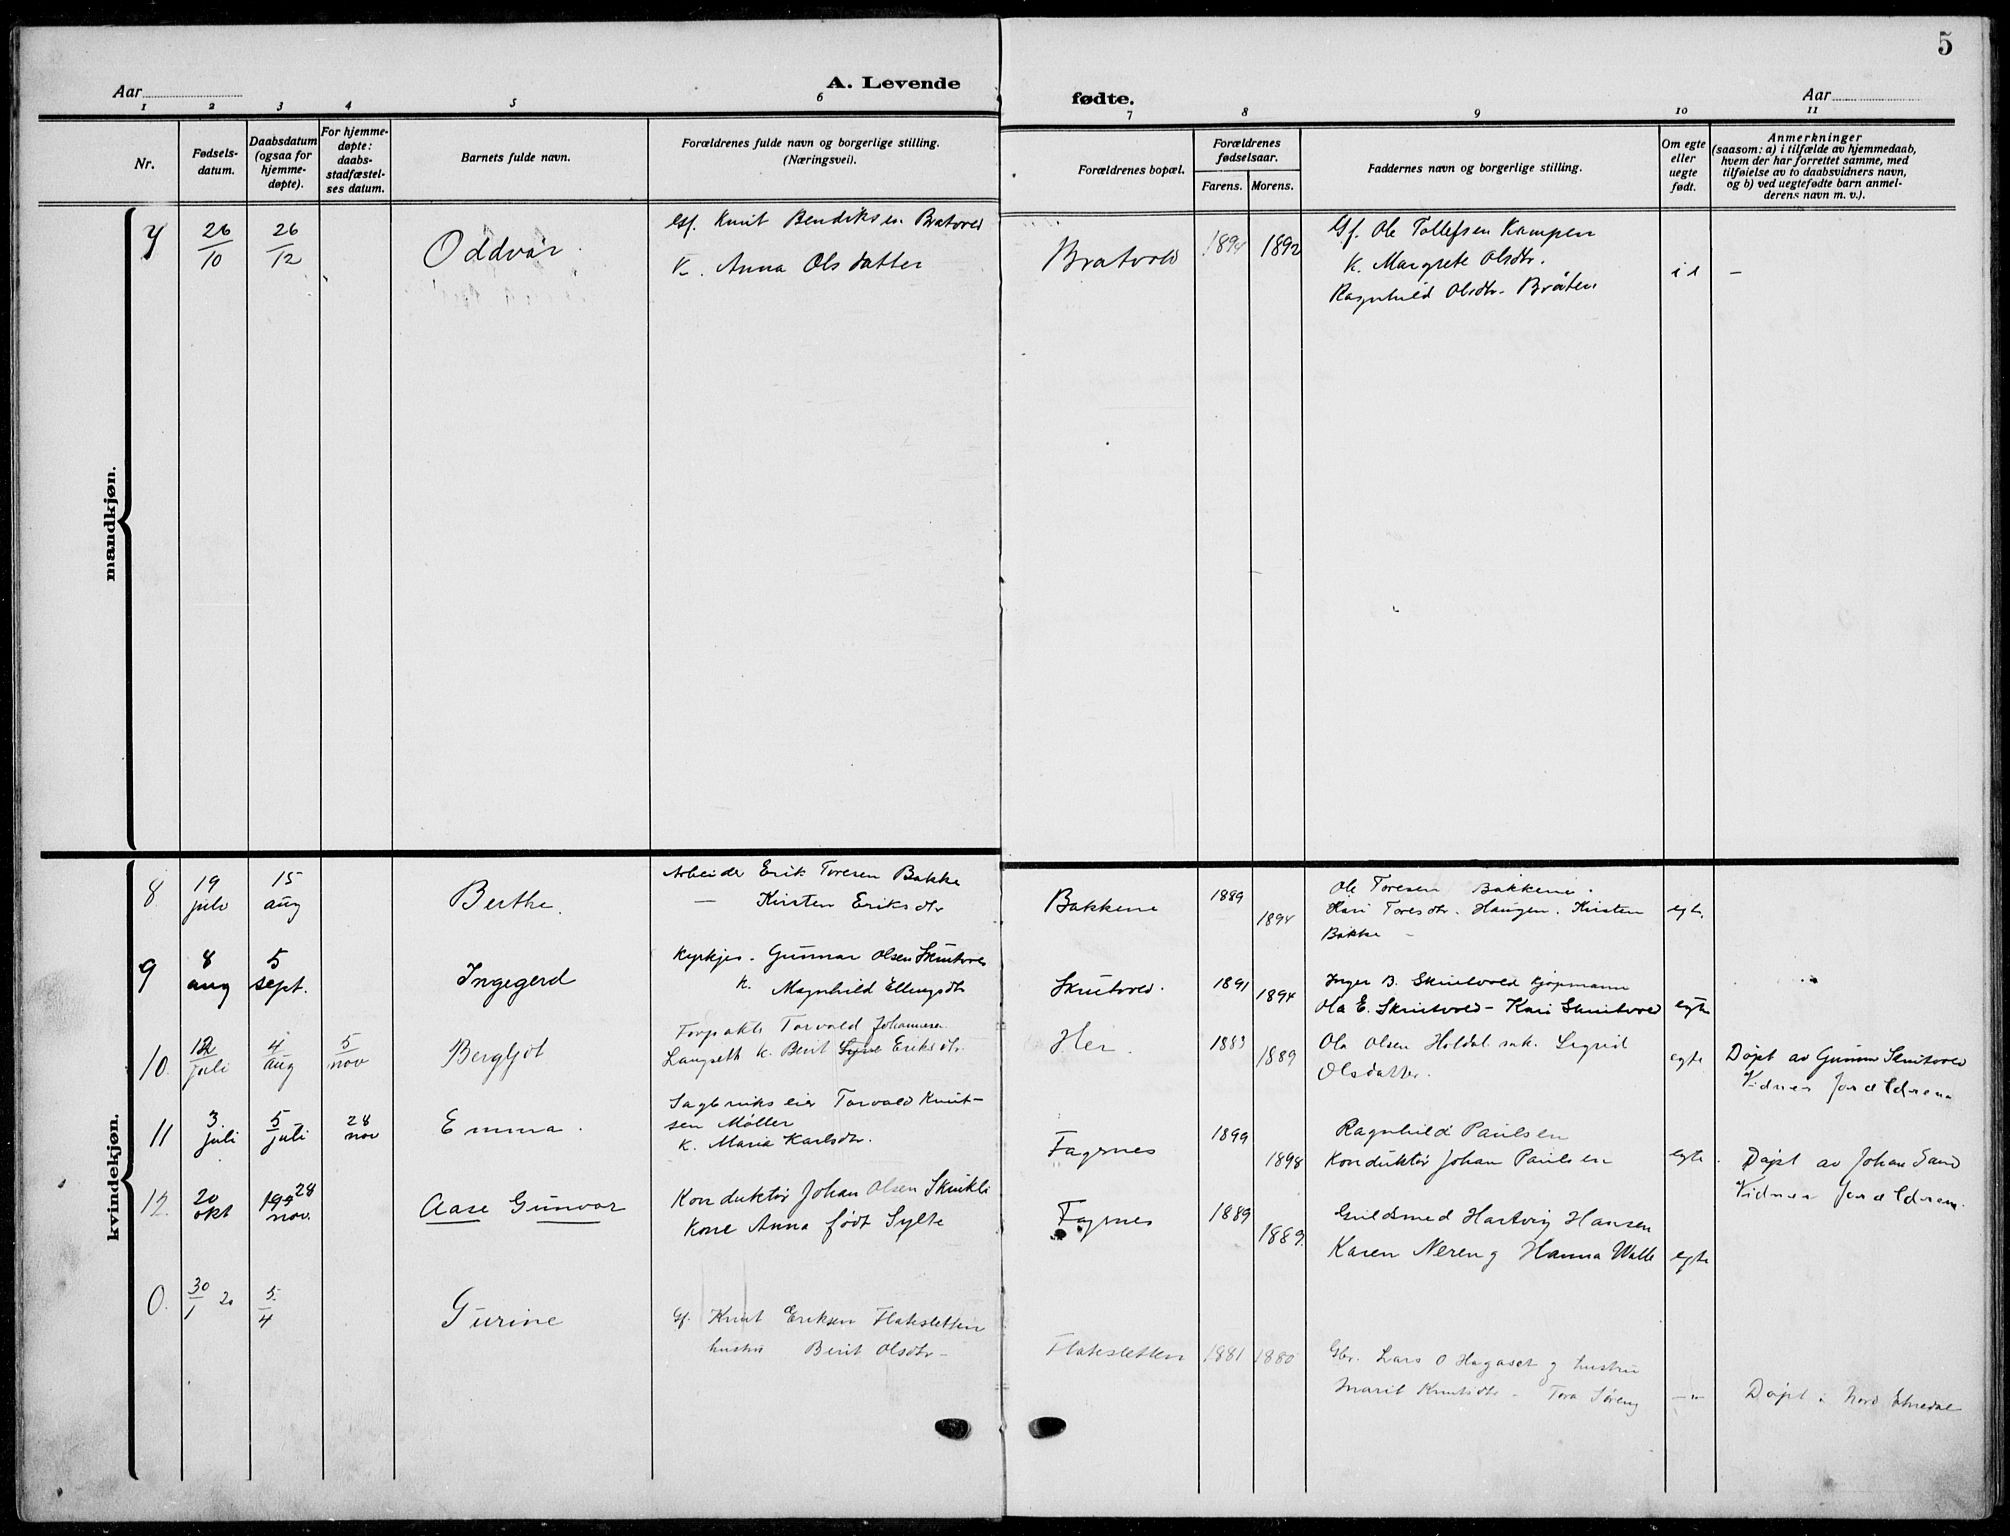 5
Aar
A. Levende
fødte.
Aar
1 2 3 4 5 6 7 8 9 10 11
Nr.
Fødsels-
datum.
Daabsdatum
(ogsaa for
hjemme-
døpte).
For hjemme-
døpte:
daabs-
stadfæstel-
ses datum.
Barnets fulde navn.
Forældrenes fulde navn og borgerlige stilling.
(Næringsvei).
Forældrenes bopæl.
Forældrenes
fødselsaar.
Farens. Morens.
Faddernes navn og borgerlige stilling.
Om egte
eller
uegte
født.
Anmerkninger
(saasom: a) i tilfælde av hjemmedaab,
hvem der har forrettet samme, med
tilføielse av to daabsvidners navn,
og b) ved uegtefødte barn anmel-
derens navn m. v.).
mandkjøn.
7
26/10
26/12
Oddvar
Gf. Knut Bendiksen Bratvold
K. Anna Olsdatter
Bratvold
1894 1892
Gf. Ole Tollefsen Kampen
K. Margrete Olsdtr.
Ragnhild Olsdtr. Bråten
–
kvindekjøn.
8.
19 juli
15 aug
Berthe.
Arbeider Erik Toresen Bakke
— Kirsten Eriksdtr
Bakkene
1889
1894
Ole Toresen Bakkene.
Kari Toresdtr. Haugen. Kirsten
Bakke –
egte
9
8 aug
5 sept.
Ingegerd
Kyrkjes. Gunnar Olsen Skrutvold
K. Magnhild Ellingsdtr
Skrutvold.
1891
1894
Inger B. Skrutvold kjøpmann
Ola E. Skrutvold – Kari Skrutvold
egte
10.
12 juli
4 aug
5 nov
Bergljot
Forpakt. Torvald Johannesen
Langseth K. Berit Eriksdtr.
Hei.
1883
1889
Ola Olsen Holdal Sigrid
Olsdatter.
egte
Døpt av Gunnar Skrutvold
Vidner foreldrene
11
3 juli
5 juli
28 nov
Emma.
Sagbrukseier Torvald Knut-
sen Møller
K. Maria Karlsdtr.
Fagernes
1899
1898
Ragnhild Paulsen
Konduktør Johan Paulsen
egte.
Døpt av Johan Sand
Vidner foreldrene.
12.
20 okt
28 nov.
Aase Gunvor
Konduktør Johan Olsen Skrukli
Kone Anna født Sylte
Fagernes
1889
1889.
Guldsmed Hartvig Hansen
Karen Neren og Hanna Walle
egte
0.
30/1 20
5/4
Gurine
Gf. Knut Eriksen Flatsletten
hustru Berit Olsdtr –
Flatsletten
1881 1880
Gbr. Lars O Hagaset og hustru
Marit Knutsdtr – Tora Søreng
—"—
Døpt i Nord Etnedal